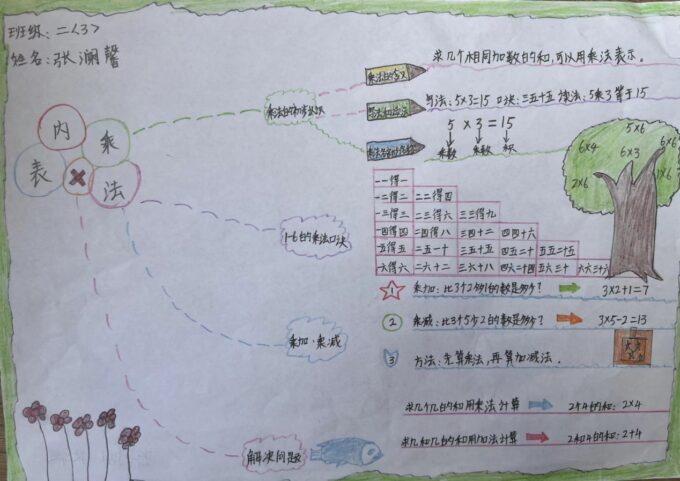 班级:二<3>
姓名:张澜馨
表内乘法
×
乘法的初步认识
乘法的含义
求几个相同加数的和,可以用乘法表示。
写法:5×3=15 口诀:三五十五 读法:5乘3等于15
5×3=15
乘数 乘数 积
6×4 5×6 6×6
6×3
2×6 1×6
1-6的乘法口诀
一一得一
一二得二 二二得四
一三得三 二三得六 三三得九
一四得四 二四得八 三四十二 四四十六
一五得五 二五一十 三五十五 四五二十 五五二十五
一六得六 二六十二 三六十八 四六二十四 五六三十 六六三十六
乘加·乘减
1 乘加:比3个2多1的数是多少? 3×2+1=7
2 乘减:比3个5少2的数是多少? 3×5-2=13
3 方法:先算乘法,再算加减法。
解决问题
求几个几的和用乘法计算 2个4的和:2×4
求几和几的和用加法计算 2和4的和:2+4